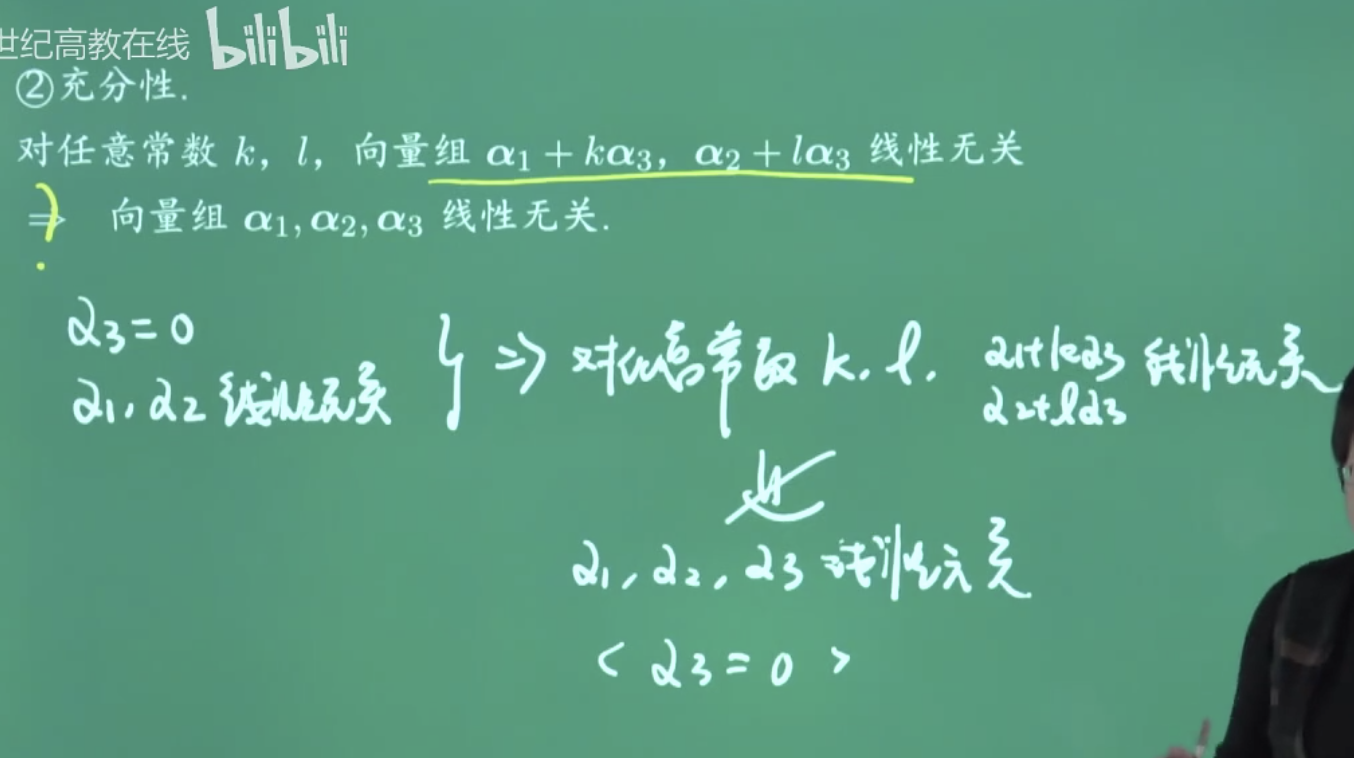 世纪高教在线 bilibili
②充分性.
对任意常数 k, l, 向量组 α₁ + kα₃, α₂ + lα₃ 线性无关
?
⇒ 向量组 α₁, α₂, α₃ 线性无关.
α₃ = 0
α₁, α₂ 线性无关
} ⇒ 对任意常数 k, l. α₁+kα₃ 线性无关
α₂+lα₃
α₁, α₂, α₃ 线性无关
< α₃ = 0 >